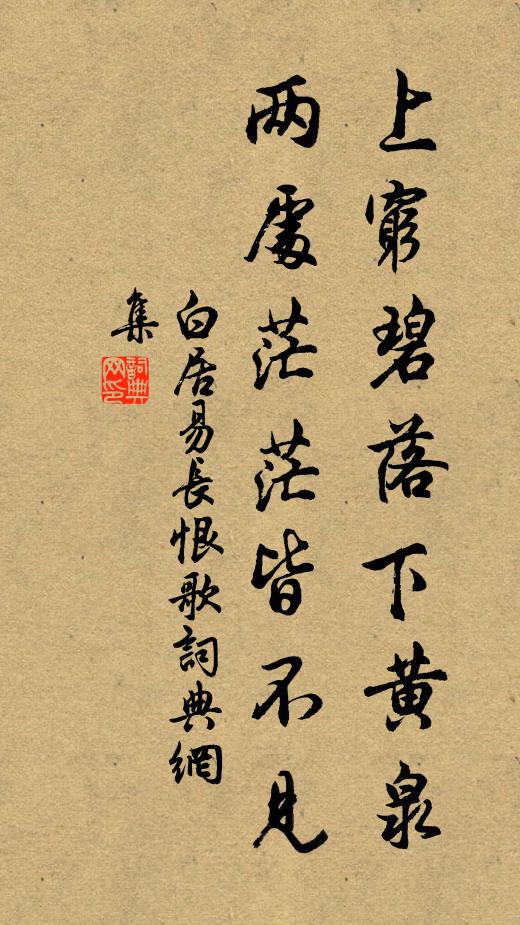 上窮碧落下黄泉
两處茫茫皆不見
白居易長恨歌詞典網
集
詞典网印